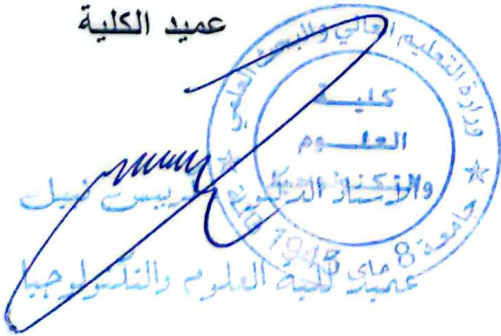 عميد الكلية
وزارة التعليم العالي والبحث العلمي
كليـــة
العلـــوم
والتكنولوجيا
جامعة 8 ماي 1945
الأستاذ الدكتور نبيل
عميد كلية العلوم والتكنولوجيا